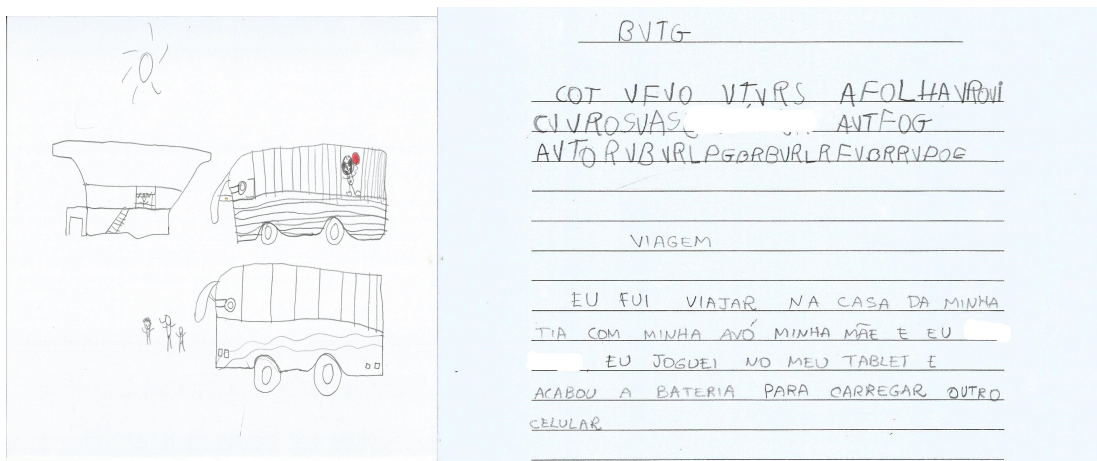 BVTG
COT VFVO VTVRS AFOLHAVROVI
CIVROSVAS AVTFOG
AVTORVBVRLPGBRBVRLRFVBRRVPOE
VIAGEM
EU FUI VIAJAR NA CASA DA MINHA
TIA COM MINHA AVÓ MINHA MÃE E EU
EU JOGUEI NO MEU TABLET E
ACABOU A BATERIA PARA CARREGAR OUTRO
CELULAR